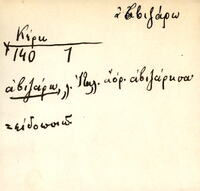 ἀβιζάρω
Κύπρ
140 1
ἀβιζάρω, ἀόρ. ἀβιζάρησα
= εἰδοποιῶ